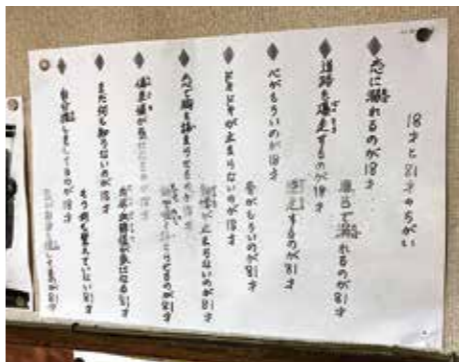 18才と81才のちがい
◆恋に溺れるのが18才
風呂で溺れるのが81才
◆道路を暴走するのが18才
逆走するのが81才
◆心がもろいのが18才
骨がもろいのが81才
◆ドキドキが止まらないのが18才
動悸が止まらないのが81才
◆恋で胸を詰まらせるのが18才
餅で喉を詰まらせるのが81才
◆偏差値が気になるのが18才
血糖値が気になる81才
◆まだ何も知らないのが18才
もう何も覚えていない81才
◆自分探しをしてるのが18才